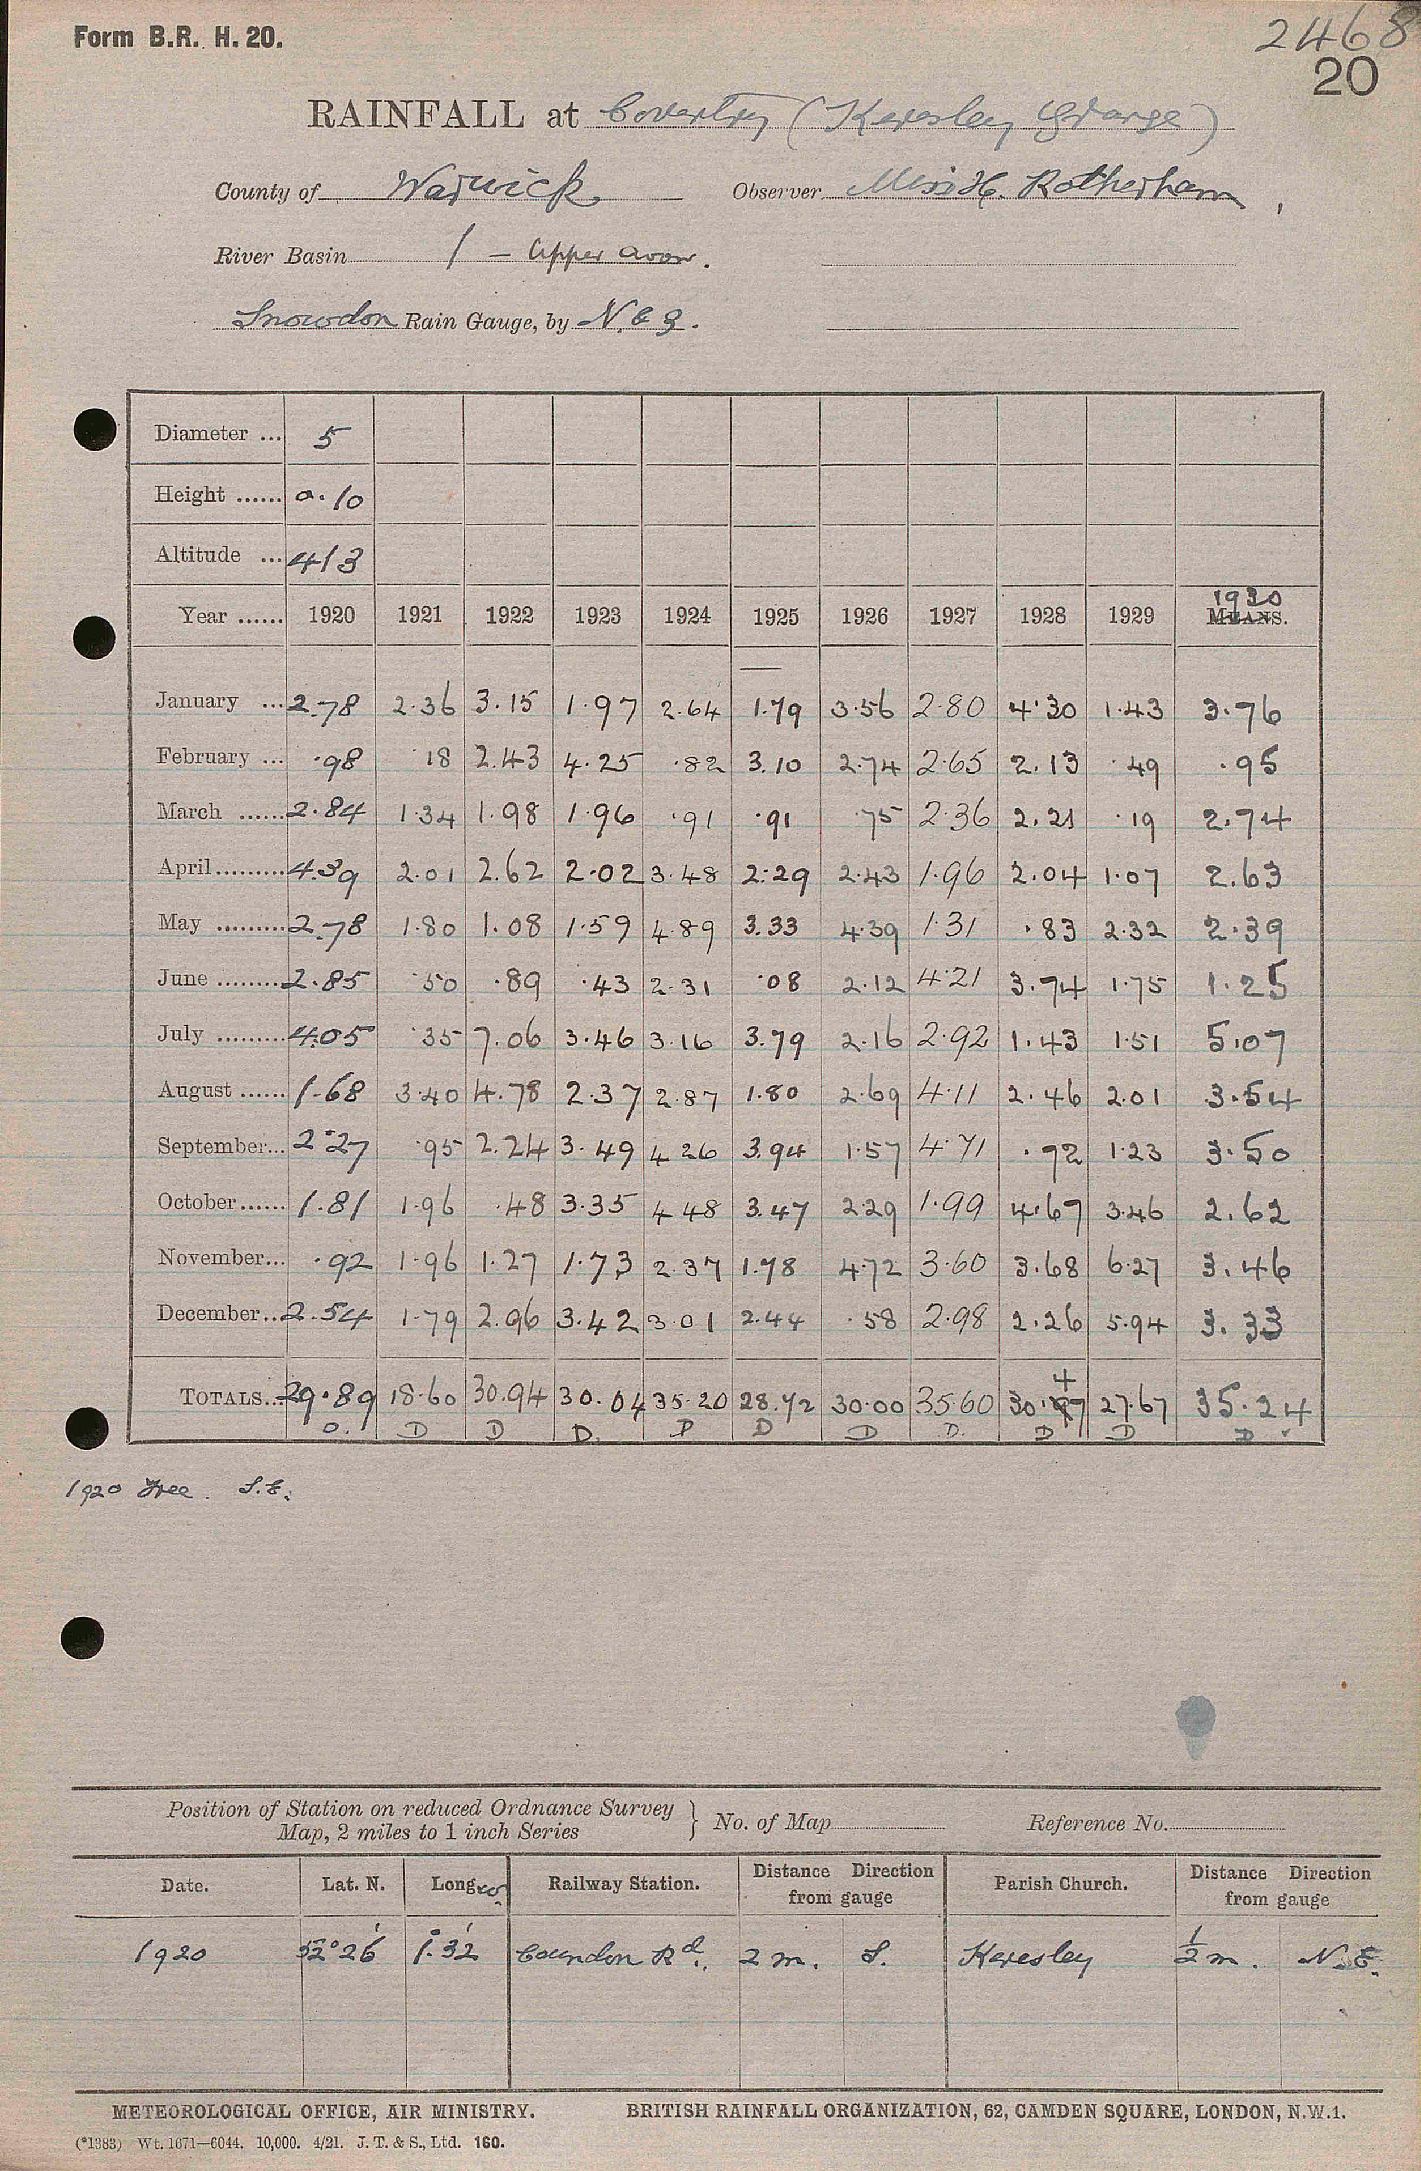 Form B.R. H. 20.
2468
20
RAINFALL at Coventry (Keresley Grange)
County of Warwick Observer Miss H. Rotherham,
River Basin 1 - Upper Avon.
Snowdon Rain Gauge, by N. & Z.
Diameter ... 5
Height ...... 0.10
Altitude ... 413
1930
Year ...... 1920 1921 1922 1923 1924 1925 1926 1927 1928 1929 MEANS.
January ... 2.78 2.36 3.15 1.97 2.64 1.79 3.56 2.80 4.30 1.43 3.76
February ... .98 .18 2.43 4.25 .82 3.10 2.74 2.65 2.13 .49 .95
March ...... 2.84 1.34 1.98 1.96 .91 .91 .75 2.36 2.21 .19 2.74
April ......... 4.39 2.01 2.62 2.02 3.48 2.29 2.43 1.96 2.04 1.07 2.63
May ......... 2.78 1.80 1.08 1.59 4.89 3.33 4.39 1.31 .83 2.32 2.39
June ........ 2.85 .50 .89 .43 2.31 .08 2.12 4.21 3.74 1.75 1.25
July ......... 4.05 .35 7.06 3.46 3.16 3.79 2.16 2.92 1.43 1.51 5.07
August ...... 1.68 3.40 4.78 2.37 2.87 1.80 2.69 4.11 2.46 2.01 3.54
September... 2.27 .95 2.24 3.49 4.26 3.94 1.57 4.71 .92 1.23 3.50
October ...... 1.81 1.96 .48 3.35 4.48 3.47 2.29 1.99 4.67 3.46 2.62
November... .92 1.96 1.27 1.73 2.37 1.78 4.72 3.60 3.68 6.27 3.46
December .. 2.54 1.79 2.96 3.42 3.01 2.44 .58 2.98 2.26 5.94 3.33
4
TOTALS... 29.89 18.60 30.94 30.04 35.20 28.72 30.00 35.60 30.97 27.67 35.24
D. D D D. D D D D. D D D
1920 Tree. S.E.
Position of Station on reduced Ordnance Survey
Map, 2 miles to 1 inch Series } No. of Map Reference No.
Date. Lat. N. Long W. Railway Station. Distance Direction from gauge Parish Church. Distance Direction from gauge
1920 52° 26' 1° 32' Coundon Rd. 2 m. S. Keresley 1/2 m. N.E.
METEOROLOGICAL OFFICE, AIR MINISTRY. BRITISH RAINFALL ORGANIZATION, 62, CAMDEN SQUARE, LONDON, N.W.1.
(*1383) Wt. 1671—6044. 10,000. 4/21. J. T. & S., Ltd. 160.